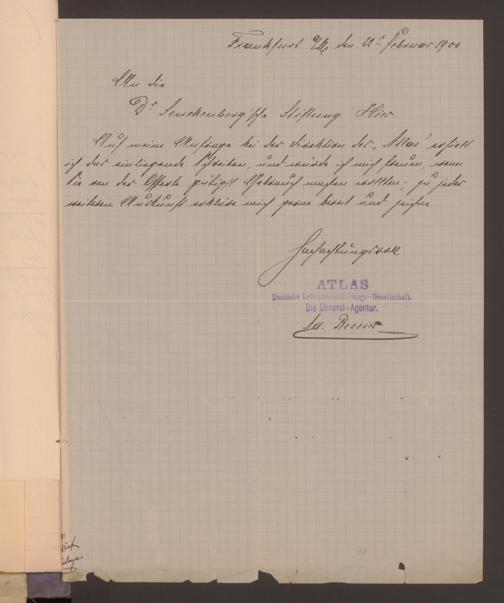 Frankfurt a/M, den 22t Februar 1900
An die
Dr. Senckenberg'sche Stiftung Hier
Auf meine Anfrage bei der Direktion der „Atlas" erhielt
ich das einliegende Schreiben, und würde ich mich freuen, wenn
Sie von der Offerte gütigst Gebrauch machen wollten; zu jeder
weiteren Auskunft erkläre mich gerne bereit und zeichne
Hochachtungsvoll
ATLAS
Deutsche Lebensversicherungs-Gesellschaft.
Die General-Agentur.